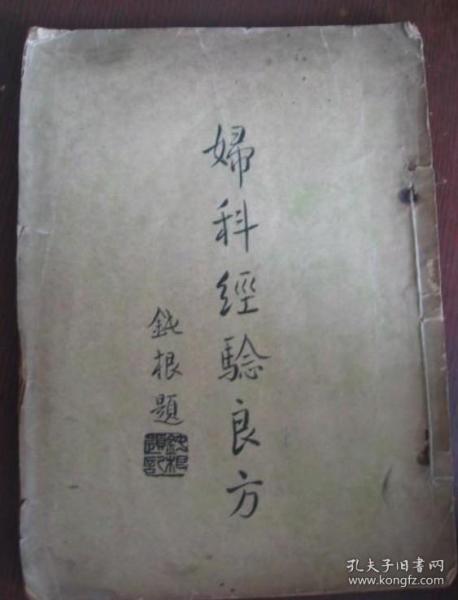 婦科經驗良方
鈍根題
鈍根題記
孔夫子旧书网
www.kongfz.com